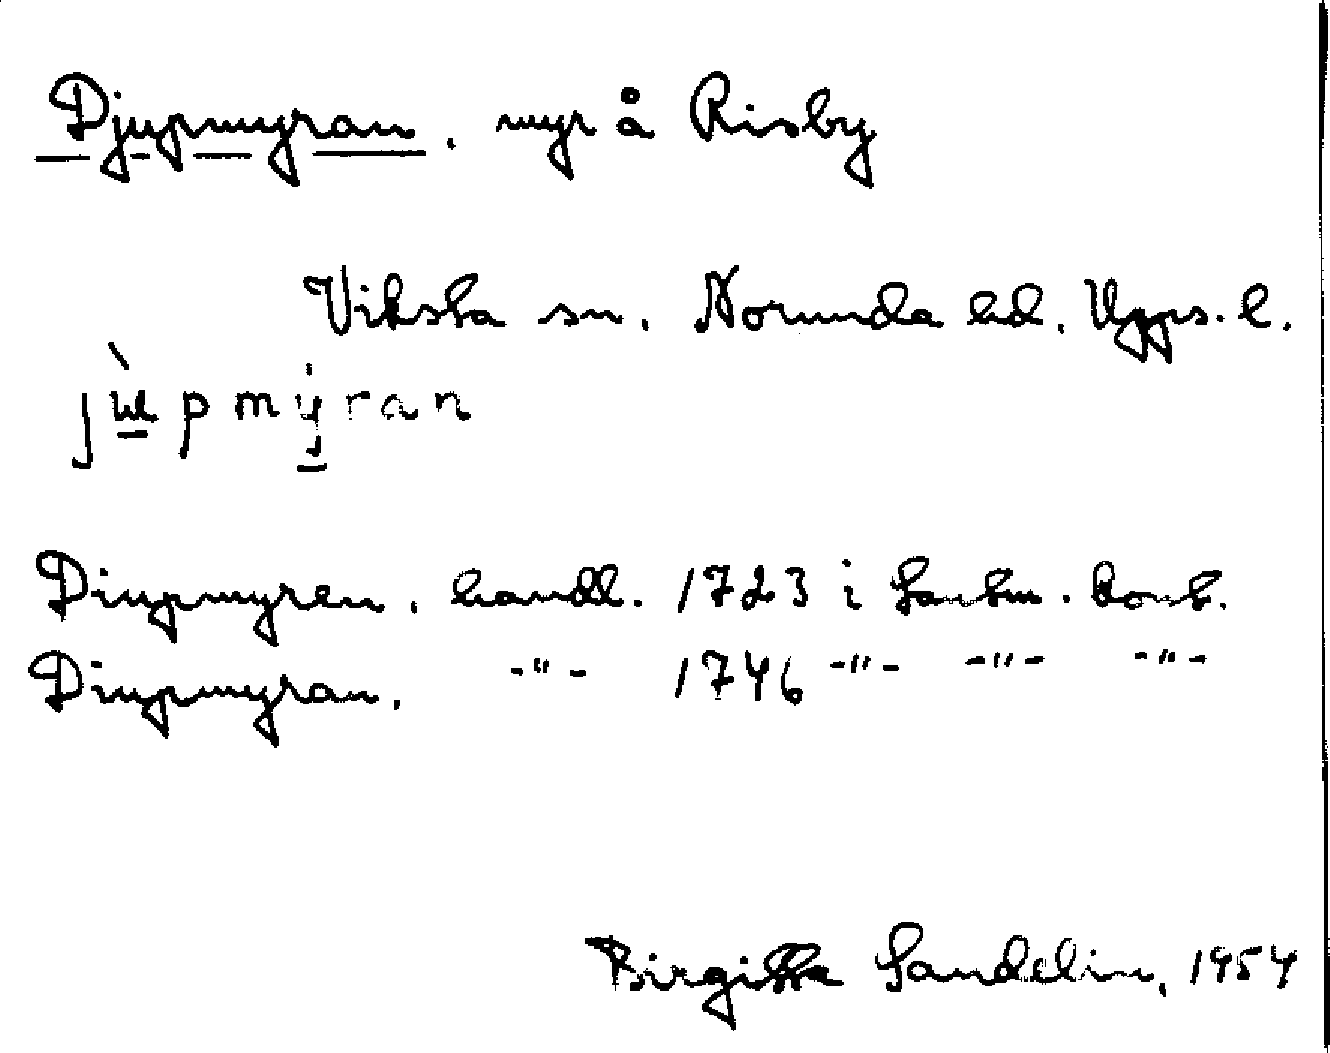 Djupmyran. myr å Risby
Viksta sn. Norunda hd. Upps. l.
jùpmyran
Diupmyren. handl. 1723 i Lantm. kont.
Diupmyran. -"- 1746 -"- -"- -"-
Birgitta Sandelin, 1954